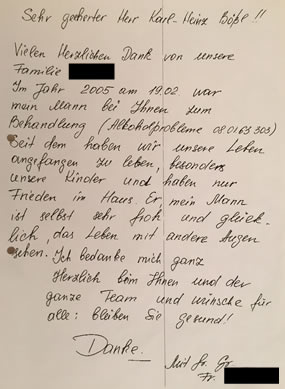 Sehr geehrter Herr Karl-Heinz Bößl !!
Vielen Herzlichen Dank von unsere
Familie
Im Jahr 2005 am 19.02 war
mein Mann bei Ihnen zum
Behandlung (Alkoholprobleme 080163303)
Seit dem haben wir unsere Leben
angefangen zu leben, besonders
unsere Kinder und haben nur
Frieden im Haus. Er, mein Mann
ist selbst sehr froh und glück-
lich, das Leben mit andere Augen
sehen. Ich bedanke mich ganz
Herzlich beim Ihnen und der
ganze Team und wünsche für
alle: bleiben Sie gesund!
Danke.
Mit fr. Gr
Fr.